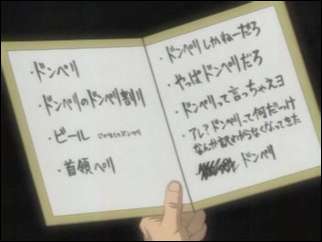 ・ドンペリ
・ドンペリのドンペリ割り
・ビール
・首領ペリ
・ドンペリしかねーだろ
・やっぱドンペリだろ
・ドンペリって言っちゃえヨ
・アレ?ドンペリって何だっけ
なんか訳わからなくなってきた
ドンペリ